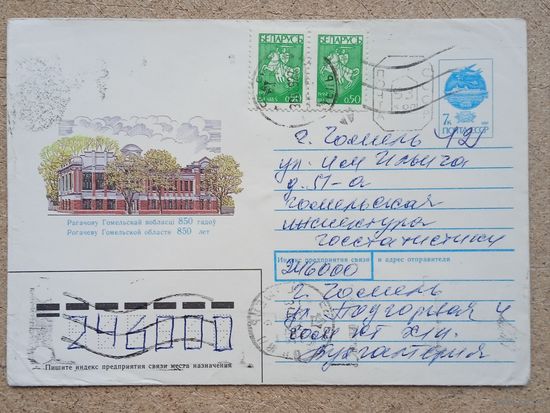 БЕЛАРУСЬ БЕЛАРУСЬ
0,50 0,50
7к
ПОЧТА СССР
г. Гомель
ул.
д. 51-а
Гомельская
госстатистики
Рагачову Гомельскай вобласці 850 гадоў
Рогачеву Гомельской области 850 лет
Индекс предприятия связи и адрес отправителя
246000
г. Гомель
ул. Подгорная 4
Бухгалтерия
246000
Пишите индекс предприятия связи места назначения